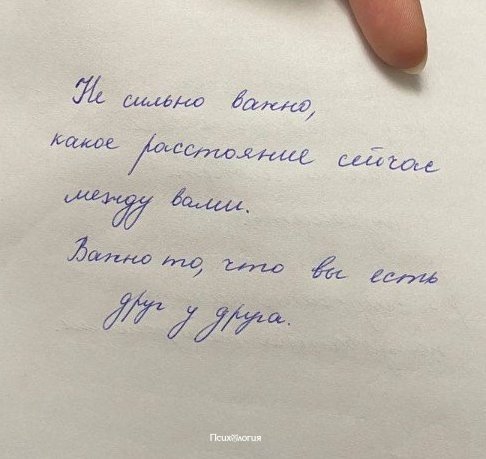 Не сильно важно,
какое расстояние сейчас
между вами.
Важно то, что вы есть
друг у друга.
Псих☺логия